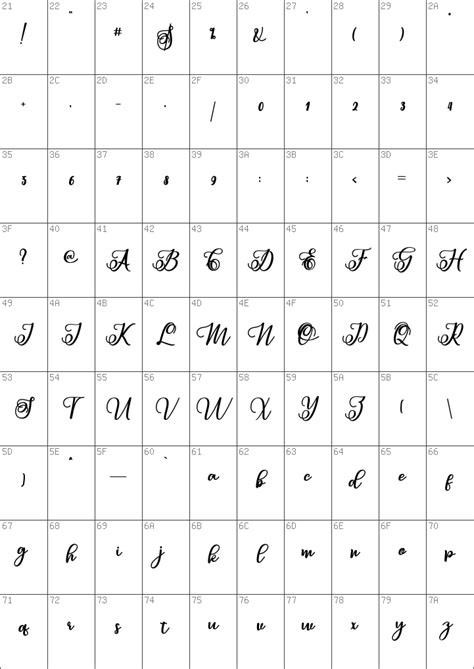 21 22 23 24 25 26 27 28 29 2A
! " # $ % & ' ( ) *
2B 2C 2D 2E 2F 30 31 32 33 34
+ , - . / 0 1 2 3 4
35 36 37 38 39 3A 3B 3C 3D 3E
5 6 7 8 9 : ; < = >
3F 40 41 42 43 44 45 46 47 48
? @ A B C D E F G H
49 4A 4B 4C 4D 4E 4F 50 51 52
I J K L M N O P Q R
53 54 55 56 57 58 59 5A 5B 5C
S T U V W X Y Z [ \
5D 5E 5F 60 61 62 63 64 65 66
] ^ _ ` a b c d e f
67 68 69 6A 6B 6C 6D 6E 6F 70
g h i j k l m n o p
71 72 73 74 75 76 77 78 79 7A
q r s t u v w x y z